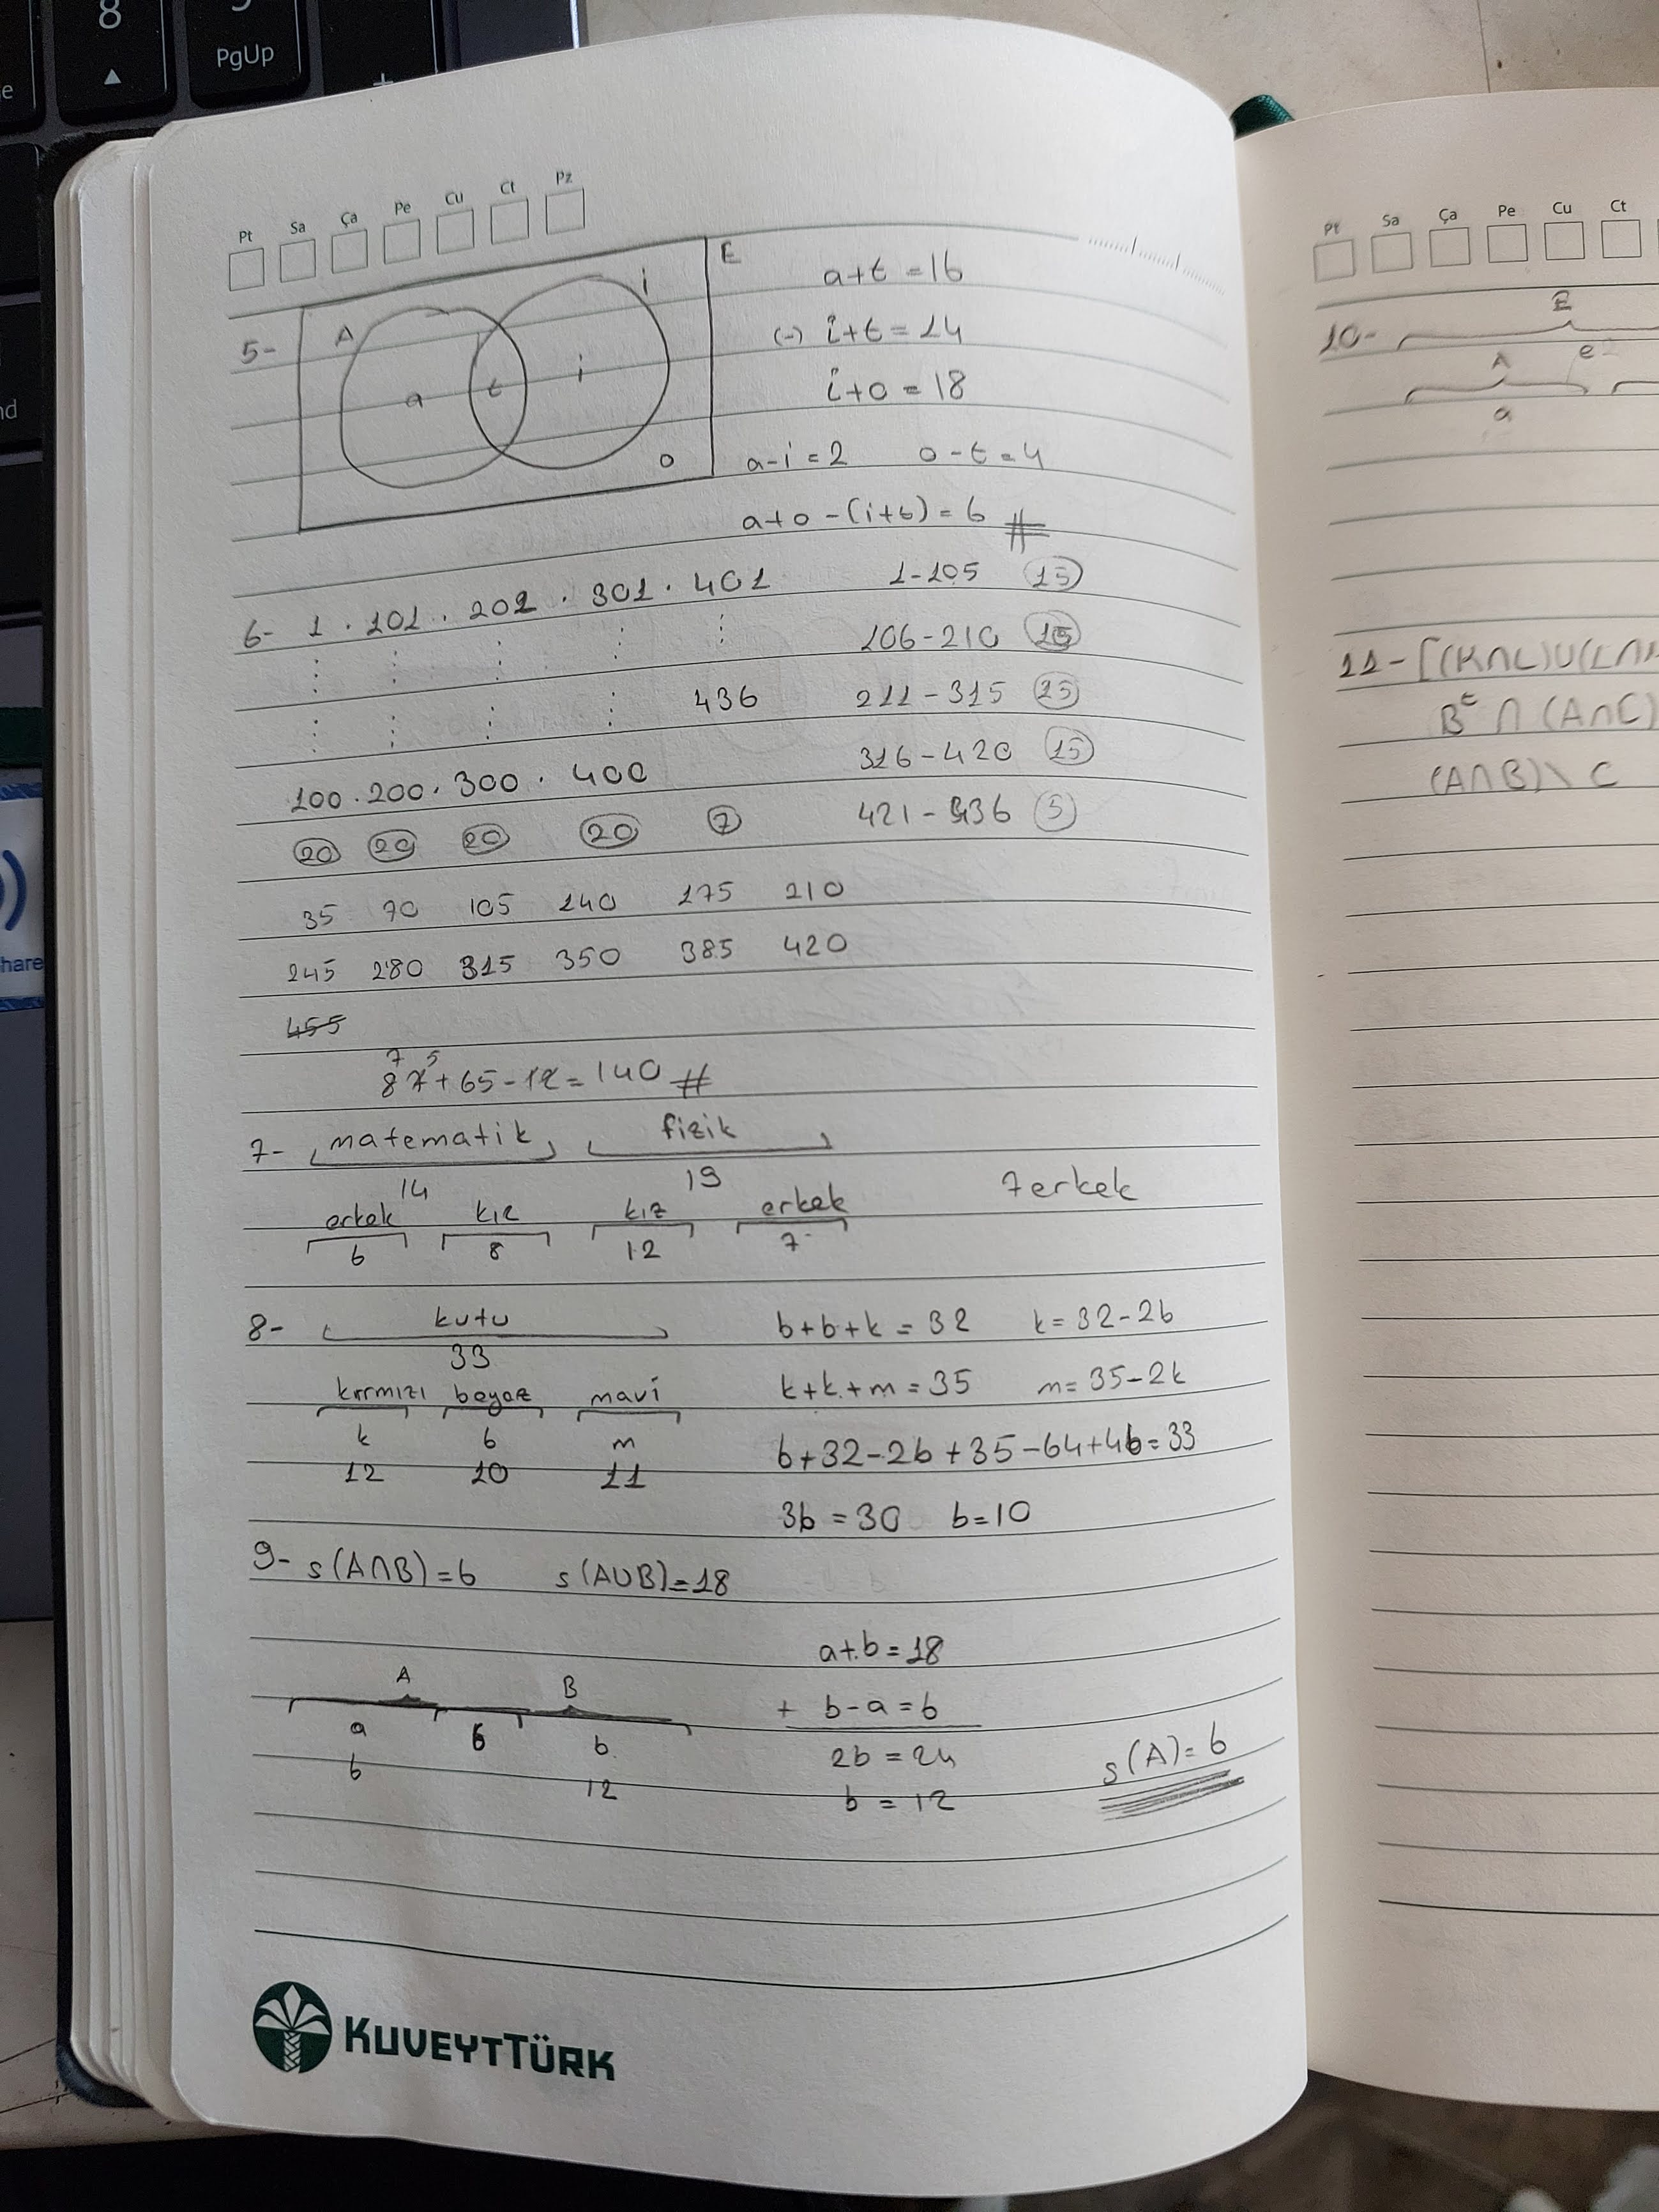 8
9
PgUp
+
Pt Sa Ça Pe Cu Ct Pz
5-
A
a
t
i
i
o
E
a+t=16
(-) i+t=14
i+o=18
a-i=2 o-t=4
a+o-(i+t)=6 #
6- 1 . 101 . 201 . 301 . 401
436
100 . 200 . 300 . 400
20 20 20 20 7
1-105 15
106-210 15
211-315 15
316-420 15
421-436 5
35 70 105 140 175 210
245 280 315 350 385 420
455
7 5
87+65-12=140 #
7- matematik fizik
14 19
erkek kız kız erkek
6 8 12 7
7 erkek
8- kutu
33
kırmızı beyaz mavi
k b m
12 10 11
b+b+k=32 k=32-2b
k+k+m=35 m=35-2k
b+32-2b+35-64+4b=33
3b=30 b=10
9- s(A∩B)=6 s(A∪B)=18
A B
a 6 b
6 12
a+b=18
+ b-a=6
2b=24
b=12
s(A)=6
KUVEYTTÜRK
Pt Sa Ça Pe Cu Ct
10-
E
A e
a
11- [(K∩L)∪(L∩
B^c ∩ (A∩C)
(A∩B)\C
hare